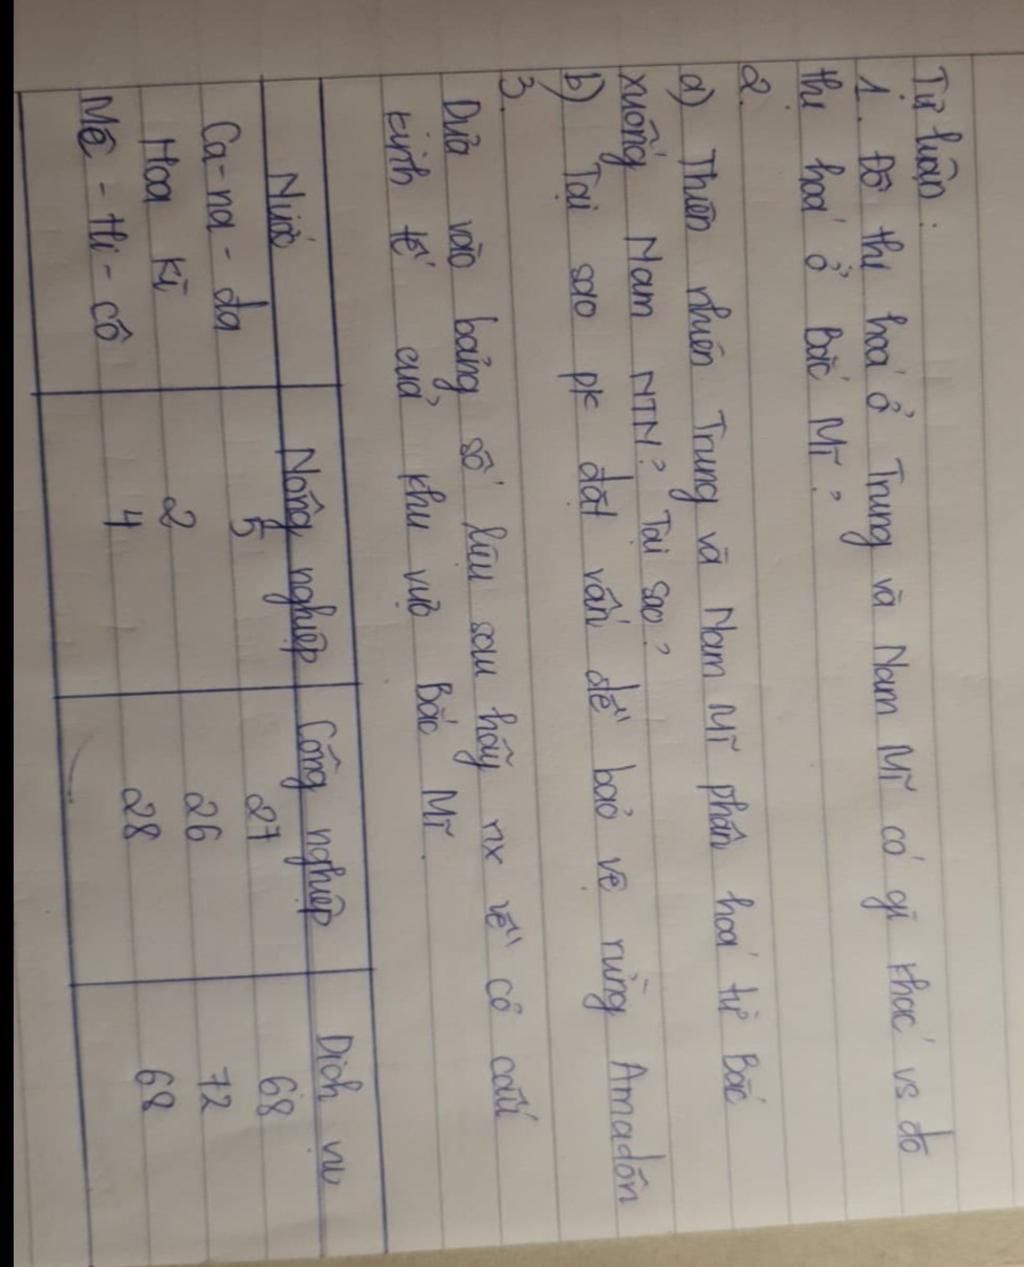 Tự luận:
1. Đô thị hoá ở Trung và Nam Mĩ có gì khác vs đô
thị hoá ở Bắc Mĩ?
2.
a) Thiên nhiên Trung và Nam Mĩ phân hoá từ Bắc
xuống Nam NTN? Tại sao?
b) Tại sao pk đặt vấn đề bảo vệ rừng Amadôn
3.
Dựa vào bảng số liệu sau hãy nx về cơ cấu
kinh tế của khu vực Bắc Mĩ.
Nước Nông nghiệp Công nghiệp Dịch vụ
Ca-na-da 5 27 68
Hoa Kì 2 26 72
Mê-hi-cô 4 28 68